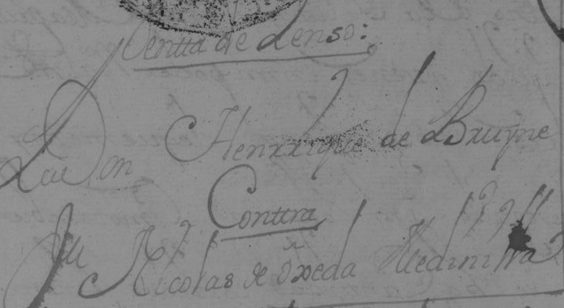 Ventta de Zenso:
Don Henrrique de Bruyne
Conttra
Nicolas de Oxeda Medinilla